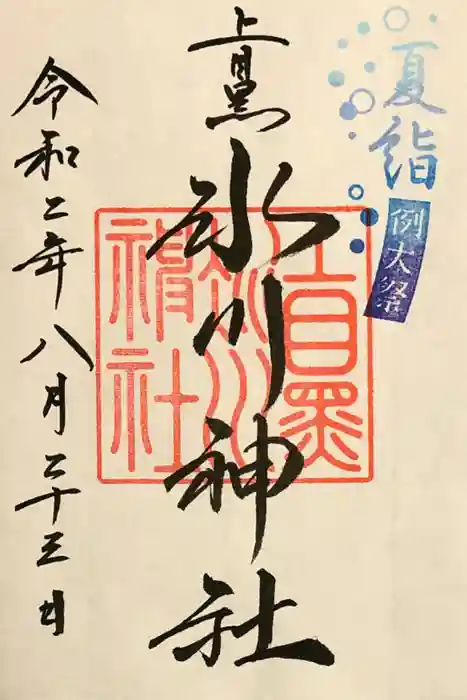 夏詣
例大祭
上目黒
氷川神社
上目黒
氷川
神社
令和二年八月二十三日